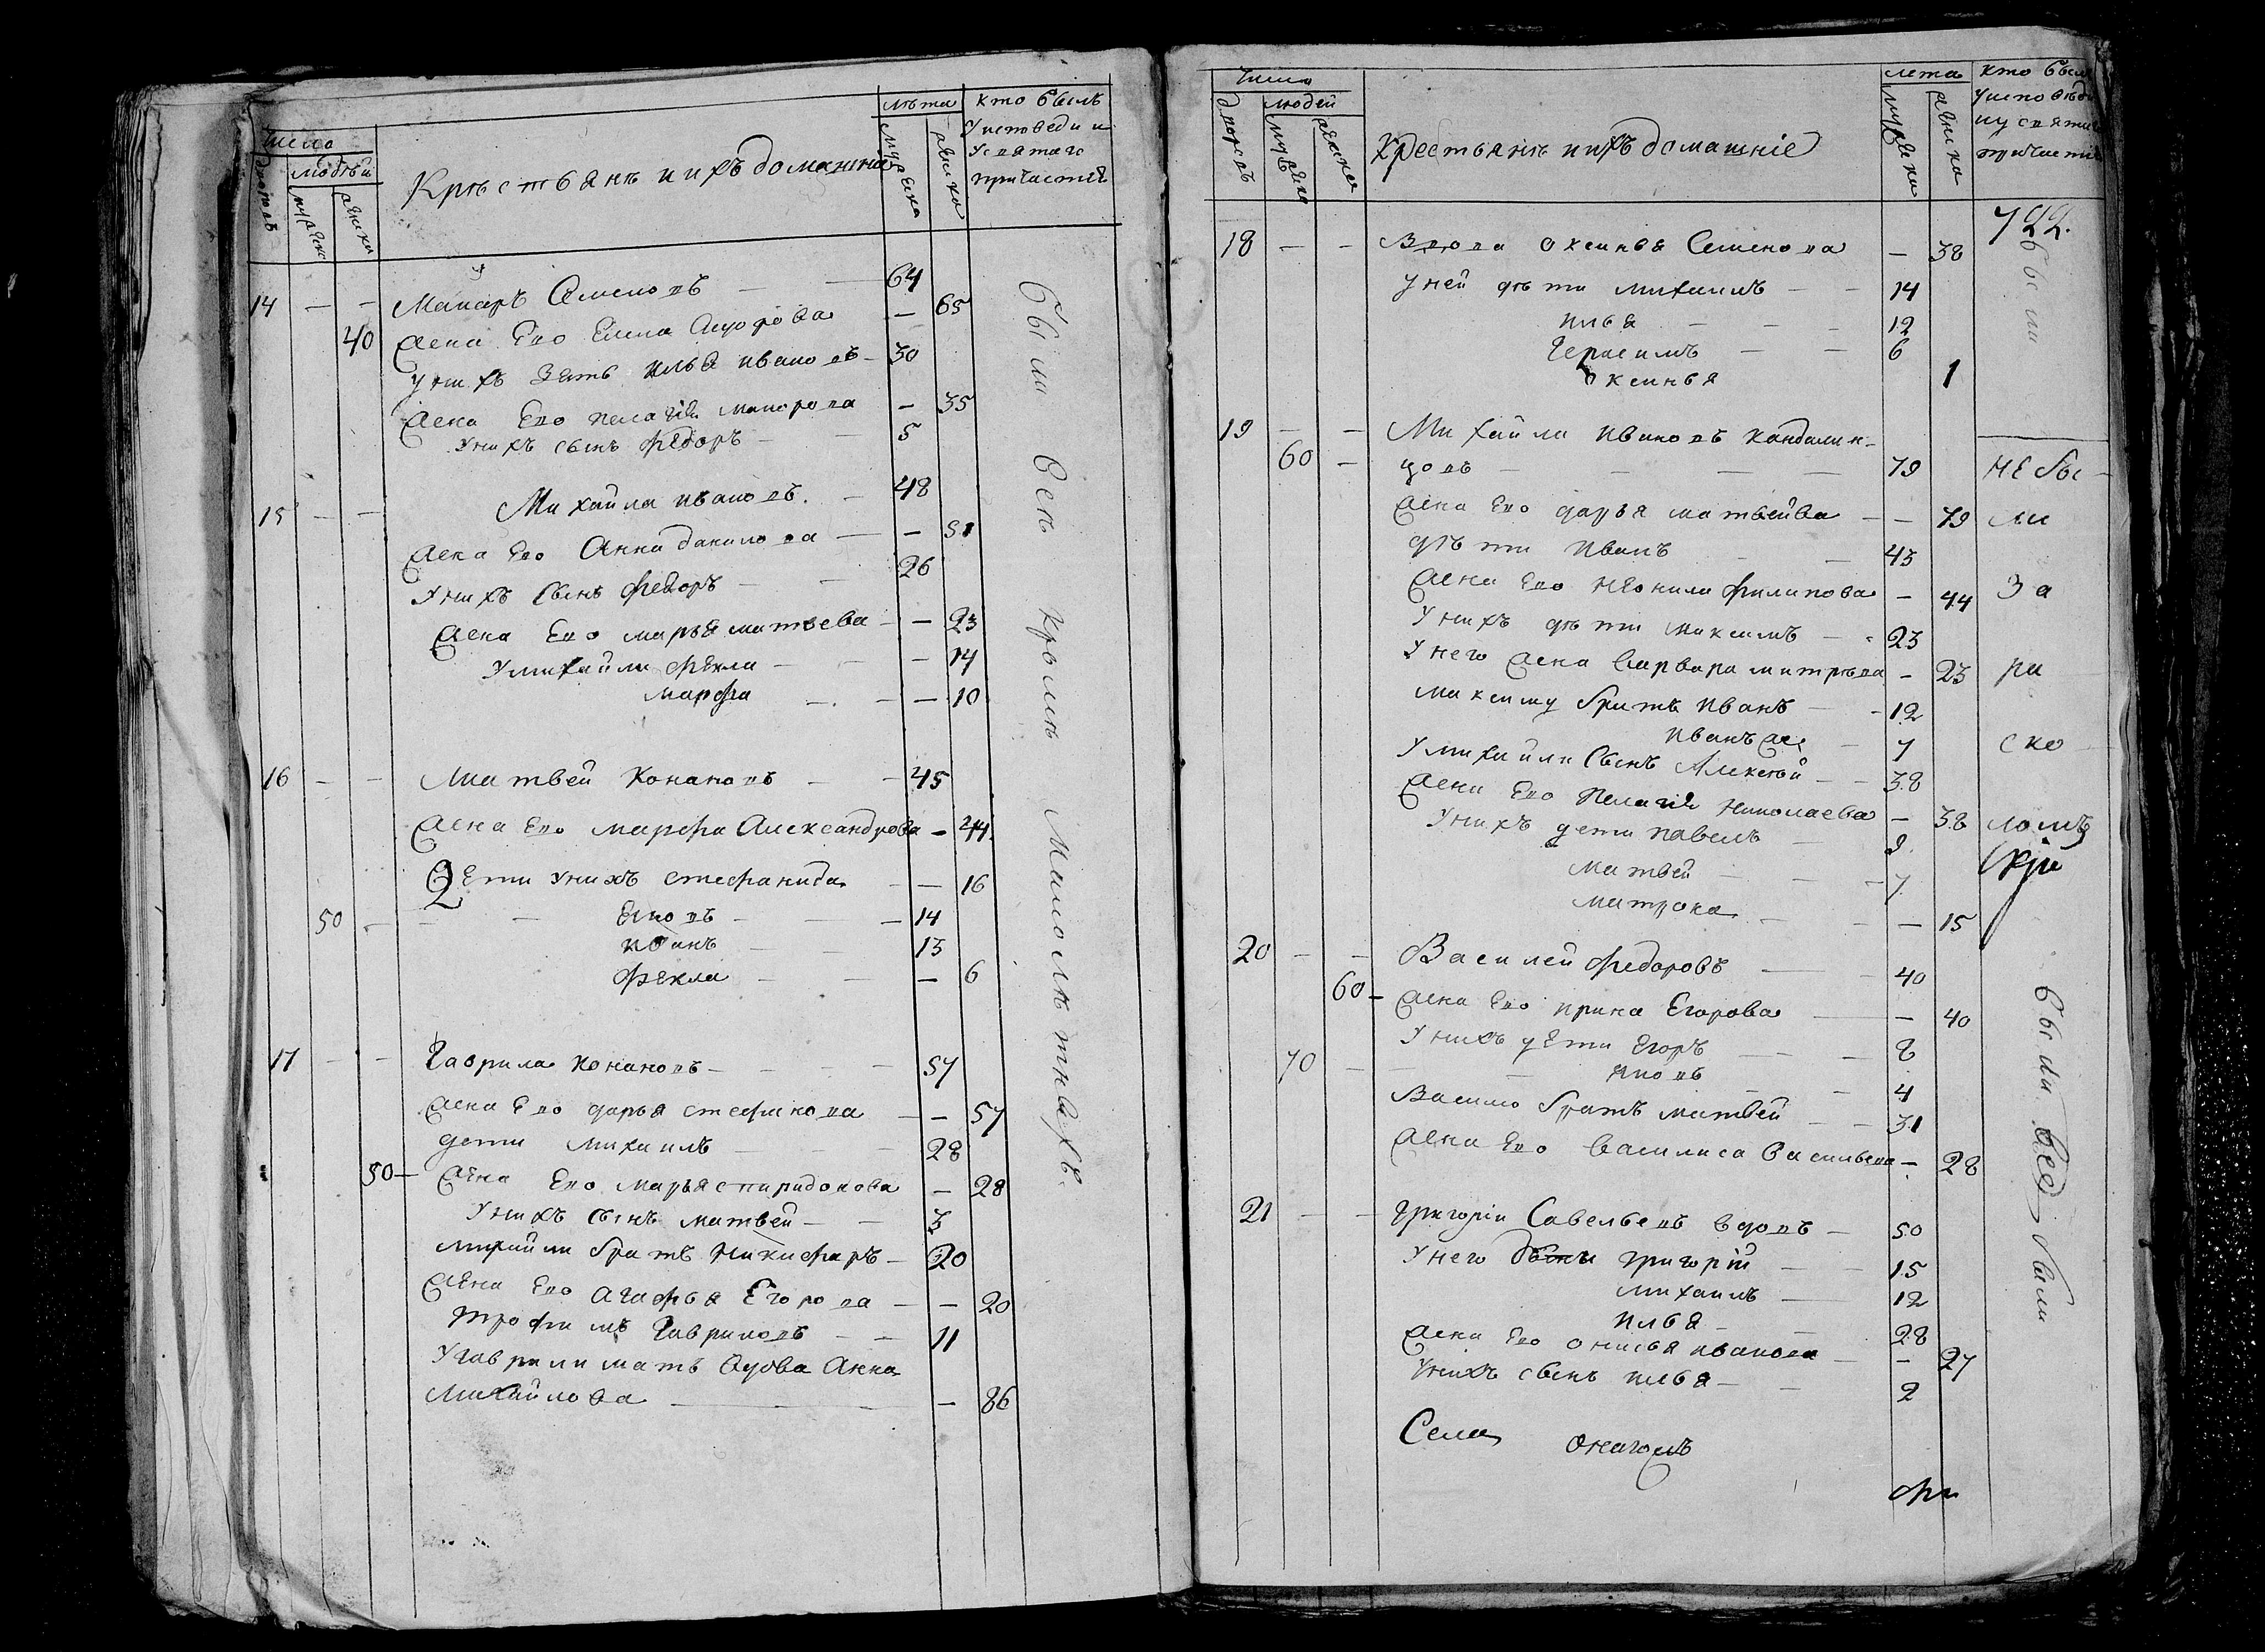 Число
людѣй
дворовъ
мужска
женска
Крѣстьянѣ и ихъ домашнїе
лѣта
мужска
женска
кто былъ
у исповеди и
у святаго
причастїя
14 — — Макаръ Семеновъ — — 64
40 жена Ево Елена — 65
у нихъ зять илья ивановъ — 30
жена Ево пелагія макарова — 35
у нихъ сынъ федоръ — — 5
15 — — Михайла ивановъ — 48
жена Ево Анна данилова — — 51
у нихъ сынъ федоръ — — 26
жена Ево марья матвева — — 23
у михайлы фекла — — — 14
марфа — — — 10
16 — — Матвей Конановъ — — 45
жена Ево марфа Александрова — 44
Дети у нихъ стефанида — — 16
50 — — — Яковъ — — — 14
иванъ — — 13
фекла — — — 6
17 — — Гаврила конановъ — — — 57
жена Ево дарья стефанова — — 57
дети михаилъ — — — 28
50 — жена Ево марья спиридонова — 28
у нихъ сынъ матвей — — 3
михайлы братъ никифаръ — 20
жена Ево агафья Егорова — — 20
трофимъ Гавриловъ — — 11
у гаврилы мать вдова Анна
михайлова — — — — 86
были всѣ кромѣ малолѣтныхъ
Число
дворовъ
людей
мужска
женска
Крестьянѣ и ихъ домашнїе
лета
мужска
женска
кто былъ
у исповѣди
и у святаго
причастїя
722.
18 — — Вдова оксинья Семенова — 38
у ней дѣти михаилъ — — 14
илья — — — 12
Герасимъ — — 6
оксинья 1
были
19 — — Михайла ивановъ кандалин-
60 — цовъ — — — — 79
жена Ево дарья матвейва — — 79
дѣти иванъ — — 43
жена Ево неонила филипова — 44
у нихъ дѣти максимъ — — 23
у него жена варвара — 23
максиму братъ иванъ — — 12
иванъ же — 7
у михайлы сынъ Алексѣй — — 38
жена Ево пелагія николаева — 38
у нихъ дети павелъ — 9
матвей — — — 7
матрона — — — 15
не бы-
ли
за
ра
ско
ломъ
20 — — Василей федоровъ — — 40
60 — жена Ево ирина Егорова — — 40
у нихъ дети Егоръ — — — 8
70 — — — яковъ — — 4
Василью братъ матвей — — 31
жена Ево василиса васильева — 28
21 — — григорїи Савельевъ вдовъ — 50
у него григорїй — — 15
михаилъ — 12
илья — — 28
жена Ево онисья иванова — — 27
у нихъ сынъ илья — — 2
были
Села